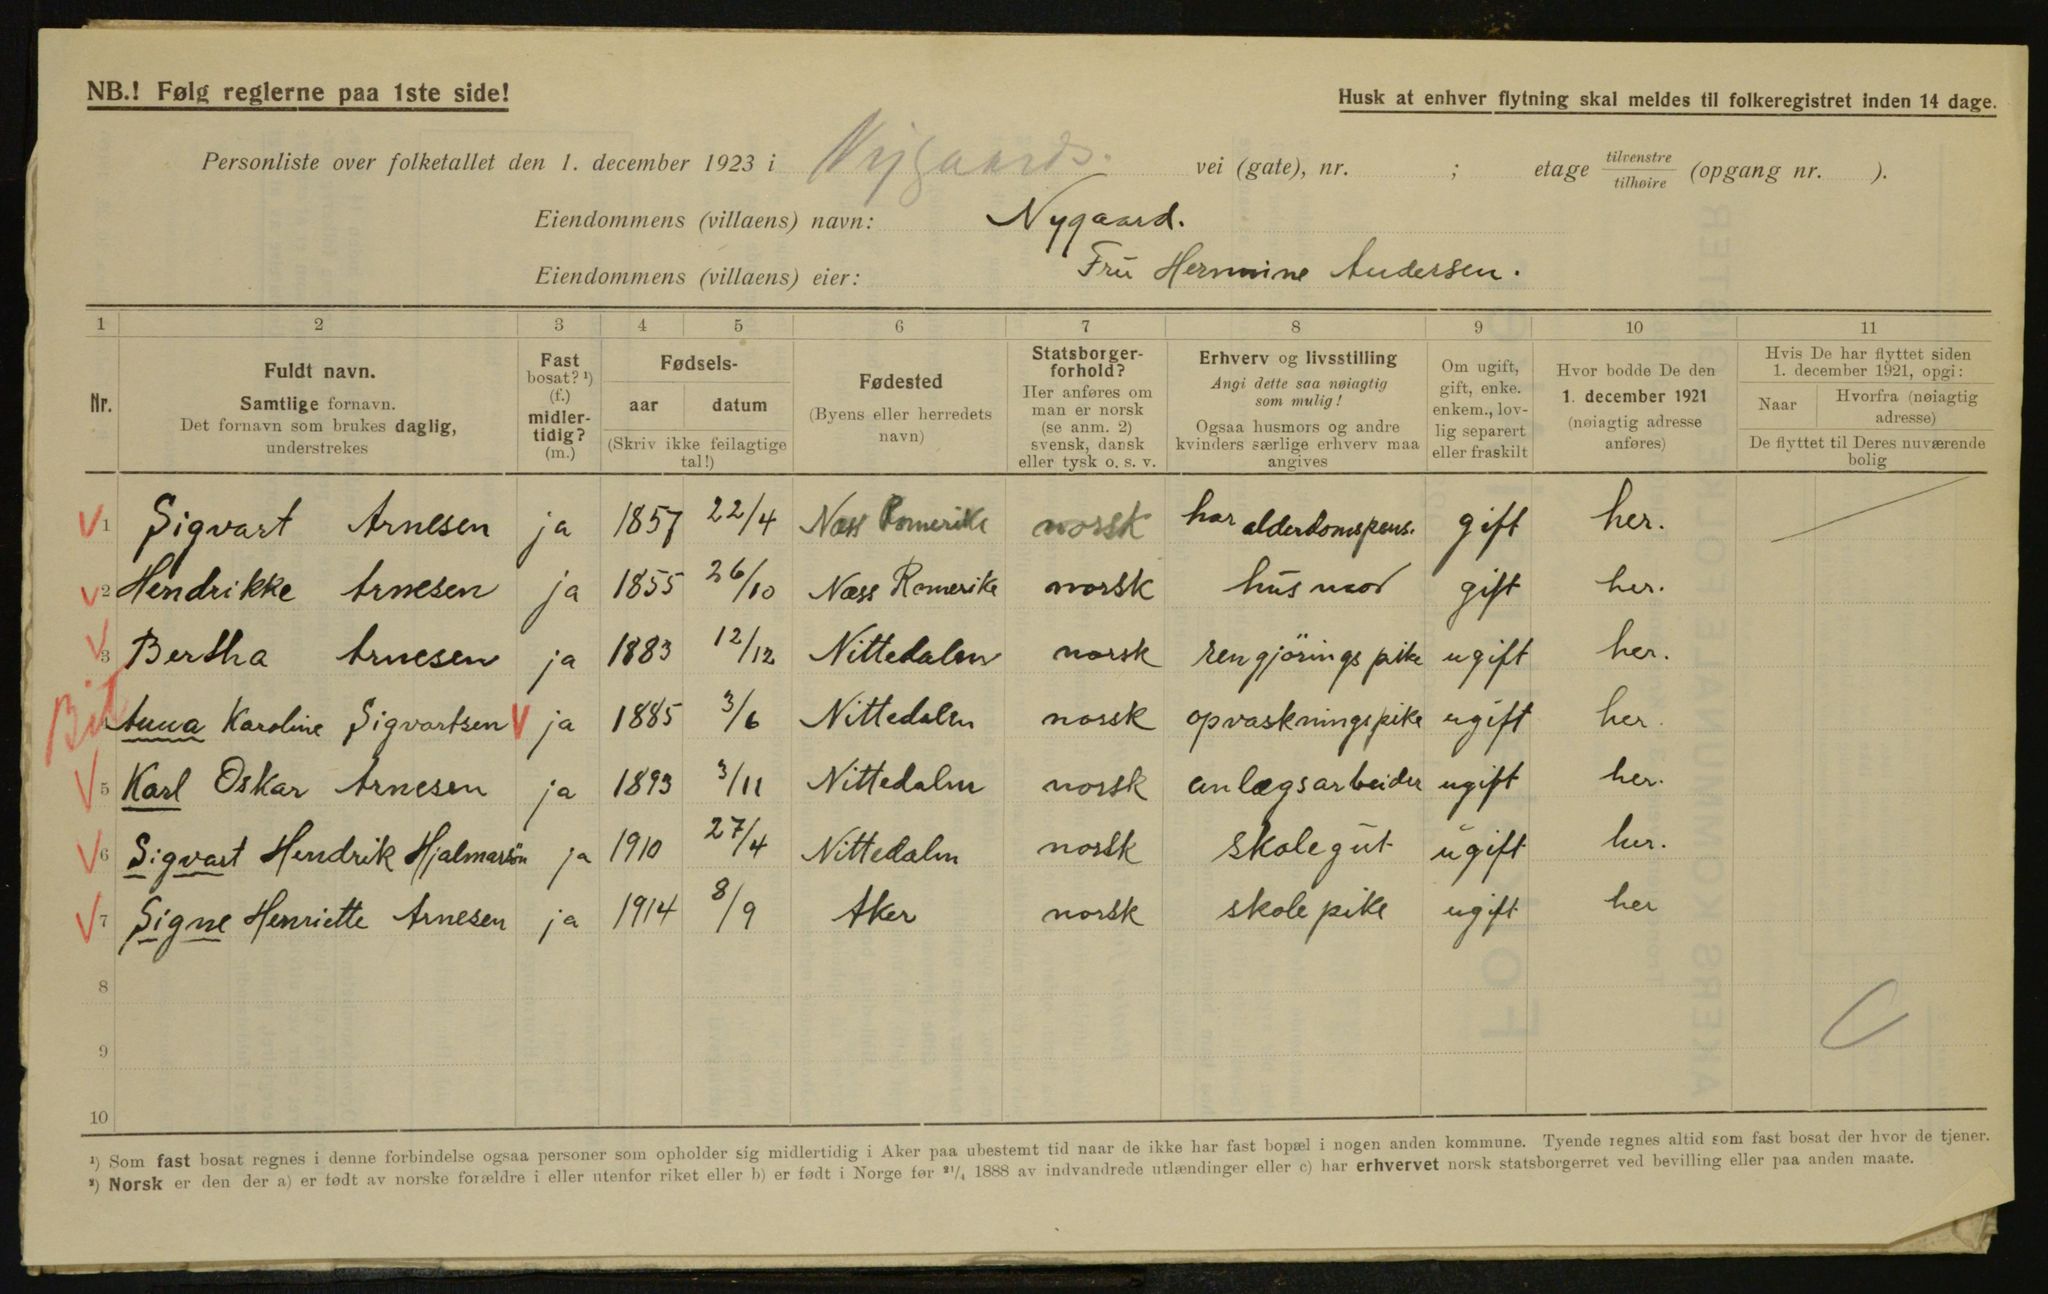 NB.! Følg reglerne paa 1ste side!
Husk at enhver flytning skal meldes til folkeregistret inden 14 dage.
Personliste over folketallet den 1. december 1923 i Nygaards. vei (gate), nr. ; etage tilvenstre tilhøire (opgang nr. ).
Eiendommens (villaens) navn: Nygaard.
Eiendommens (villaens) eier: Fru Hermine Andersen.
1 2 3 4 5 6 7 8 9 10 11
Nr.
Fuldt navn.
Samtlige fornavn.
Det fornavn som brukes daglig,
understrekes
Fast
bosat? ¹)
(f.)
midler-
tidig?
(m.)
Fødsels-
aar datum
(Skriv ikke feilagtige
tal!)
Fødested
(Byens eller herredets
navn)
Statsborger-
forhold?
Her anføres om
man er norsk
(se anm. 2)
svensk, dansk
eller tysk o. s. v.
Erhverv og livsstilling
Angi dette saa nøiagtig
som mulig!
Ogsaa husmors og andre
kvinders særlige erhverv maa
angives
Om ugift,
gift, enke.
enkem., lov-
lig separert
eller fraskilt
Hvor bodde De den
1. december 1921
(nøiagtig adresse
anføres)
Hvis De har flyttet siden
1. december 1921, opgi:
Naar Hvorfra (nøiagtig
adresse)
De flyttet til Deres nuværende
bolig
1 Sigvart Arnesen ja 1857 22/4 Næss Romerike norsk har alderdomspens. gift her.
2 Hendrikke Arnesen ja 1855 26/10 Næss Romerike norsk husmor gift her.
3 Bertha Arnesen ja 1883 12/12 Nittedalen norsk rengjörings pike ugift her.
Anna Karoline Sigvartsen ja 1885 3/6 Nittedalen norsk opvaskningspike ugift her.
5 Karl Oskar Arnesen ja 1893 3/11 Nittedalen norsk anlægsarbeider ugift her.
6 Sigvart Hendrik Hjalmarsön ja 1910 27/4 Nittedalen norsk skolegut ugift her.
7 Signe Henriette Arnesen ja 1914 8/9 Aker norsk skolepike ugift her
8
9
10
¹) Som fast bosat regnes i denne forbindelse ogsaa personer som opholder sig midlertidig i Aker paa ubestemt tid naar de ikke har fast bopæl i nogen anden kommune. Tyende regnes altid som fast bosat der hvor de tjener.
²) Norsk er den der a) er født av norske forældre i eller utenfor riket eller b) er født i Norge før ²¹/₄ 1888 av indvandrede utlændinger eller c) har erhvervet norsk statsborgerret ved bevilling eller paa anden maate.